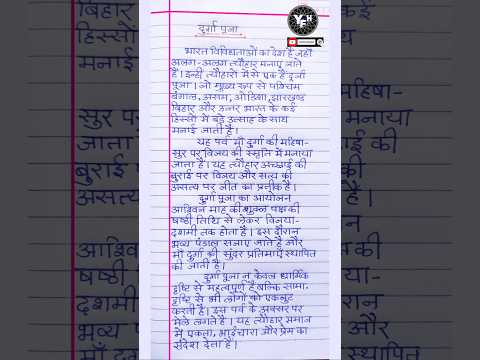 दुर्गा पूजा
भारत विविधताओं का देश है जहाँ
अलग-अलग त्यौहार मनाए जाते
हैं। इन्हीं त्यौहारों में से एक है दुर्गा
पूजा। जो मुख्य रूप से पश्चिम
बंगाल, असम, ओडिशा, झारखण्ड
बिहार और उत्तर भारत के कई
हिस्सों में बड़े उत्साह के साथ
मनाई जाती है।
यह पर्व माँ दुर्गा की महिषा-
सुर पर विजय की स्मृति में मनाया
जाता है। यह त्यौहार अच्छाई की
बुराई पर विजय और सत्य की
असत्य पर जीत का प्रतीक है।
दुर्गा पूजा का आयोजन
आश्विन माह की शुक्ल पक्ष की
षष्ठी तिथि से लेकर विजया-
दशमी तक होता है। इस दौरान
भव्य पंडाल सजाए जाते हैं और
माँ दुर्गा की सुंदर प्रतिमाएँ स्थापित
की जाती है।
दुर्गा पूजा न केवल धार्मिक
दृष्टि से महत्वपूर्ण है बल्कि सामा.
दृष्टि से भी लोगों को एकजुट
करती है। इस पर्व के अवसर पर
मेले लगते हैं। यह त्यौहार समाज
में एकता, भाईचारा और प्रेम का
संदेश देता है।